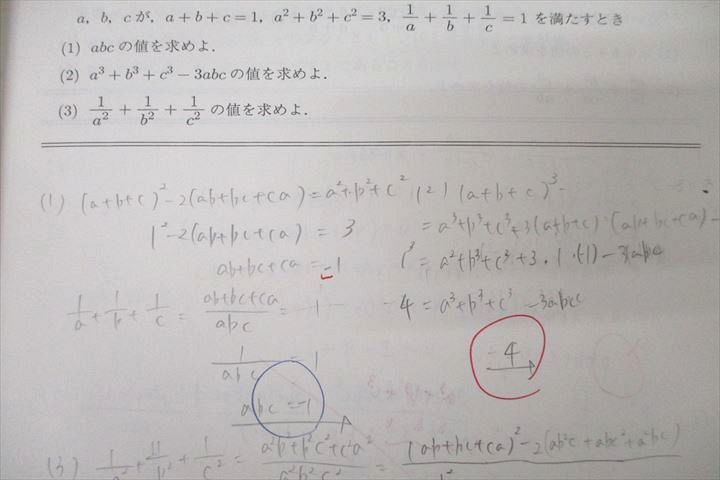 a, b, c が, a + b + c = 1, a² + b² + c² = 3, 1/a + 1/b + 1/c = 1 を満たすとき
(1) abc の値を求めよ.
(2) a³ + b³ + c³ − 3abc の値を求めよ.
(3) 1/a² + 1/b² + 1/c² の値を求めよ.
(1) (a+b+c)² − 2(ab+bc+ca) = a²+b²+c²
1² − 2(ab+bc+ca) = 3
ab+bc+ca = −1
1/a + 1/b + 1/c = (ab+bc+ca)/abc = 1
1/abc = 1
abc = −1
(2) (a+b+c)³
= a³+b³+c³+3(a+b+c)·(ab+bc+ca) −
1³ = a²+b³+c³+3·1·(−1) − 3abc
4 = a³+b³+c³ − 3abc
4
(3) 1/a² + 1/b² + 1/c² = (a²b²+b²c²+c²a²)/a²b²c² = (ab+bc+ca)² − 2(ab²c + abc² + a²bc)